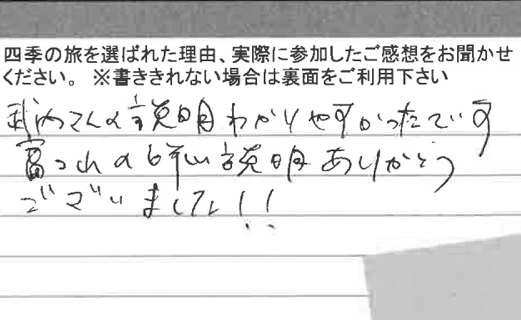 四季の旅を選ばれた理由、実際に参加したご感想をお聞かせ
ください。 ※書ききれない場合は裏面をご利用下さい
武内さんの説明わかりやすかったです
の 説明ありがとう
ございました!!